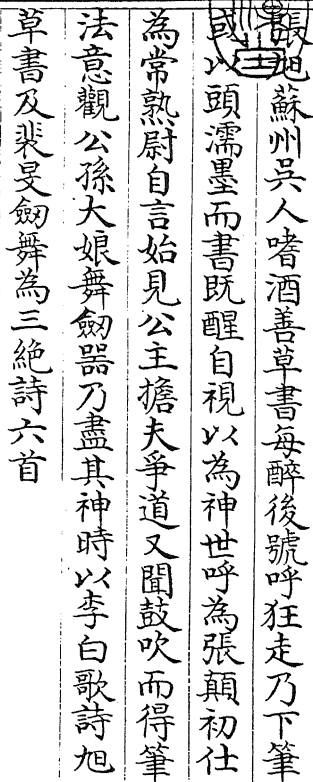 張旭蘇州吳人嗜酒善草書每醉後號呼狂走乃下筆
或以頭濡墨而書既醒自視以為神世呼為張顛初仕
為常熟尉自言始見公主擔夫爭道又聞鼓吹而得筆
法意觀公孫大娘舞劒器乃盡其神時以李白歌詩旭
草書及裴旻劒舞為三絶詩六首